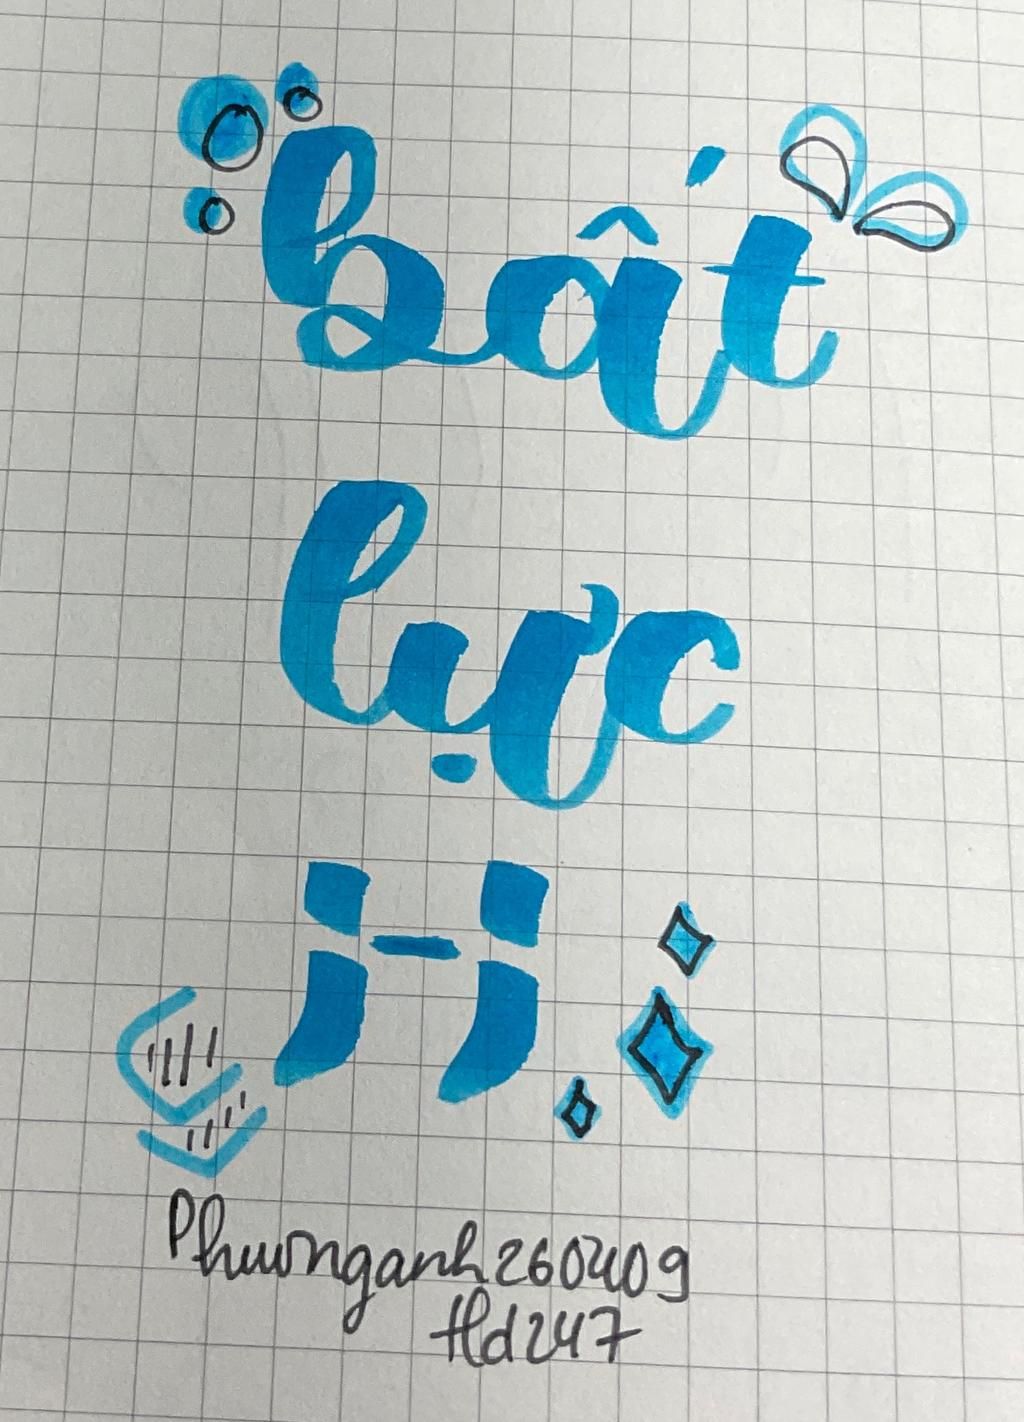 bất
lực
;-;
Phuonganh260409
Hd247